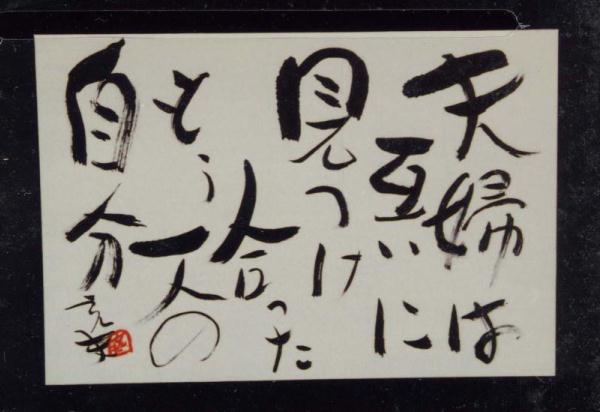 夫婦は
互いに
見つけ
合った
もう一人の
自分